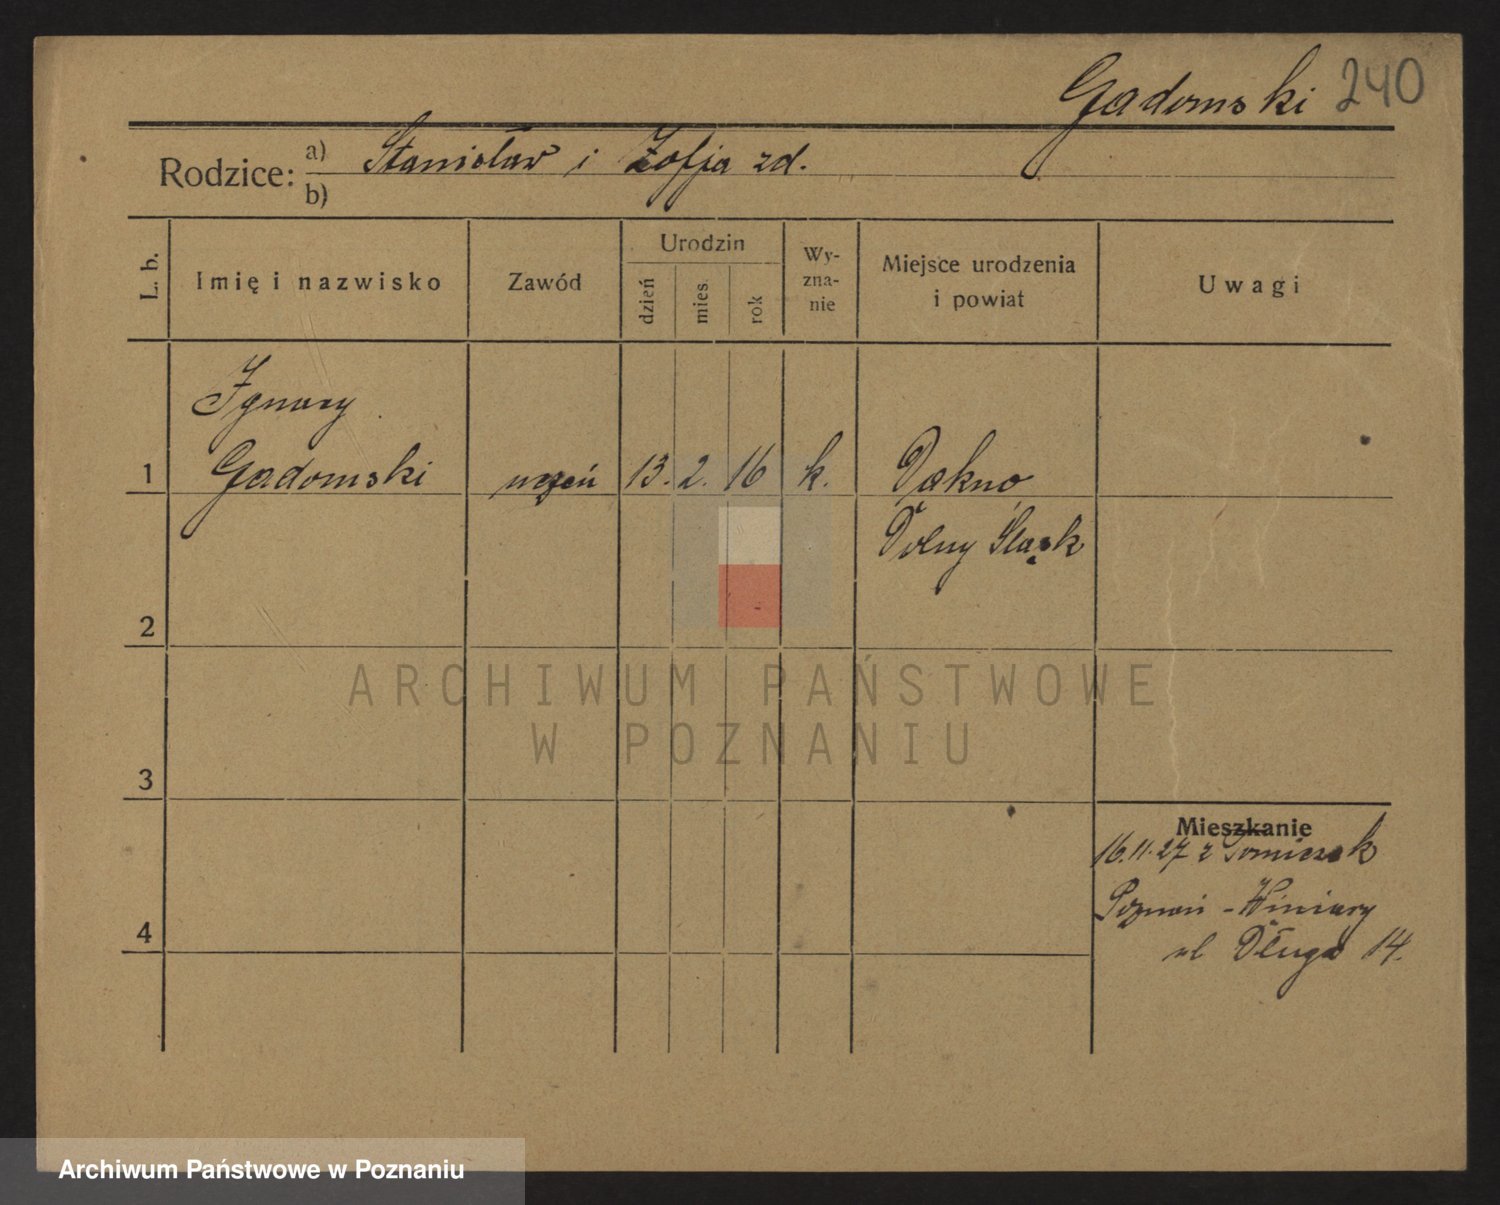 Gadomski 240
Rodzice: a) Stanisław i Zofja zd.
b)
L. b.
Imię i nazwisko
Zawód
Urodzin
dzień
mies.
rok
Wy-
zna-
nie
Miejsce urodzenia
i powiat
Uwagi
Ignacy
1 Gadomski uczeń 13. 2. 16 k. Dakno
Dolny Śląsk
2
ARCHIWUM PAŃSTWOWE
W POZNANIU
3
Mieszkanie
16.11.27 z
4
Poznań - Winiary
ul Długa 14.
Archiwum Państwowe w Poznaniu